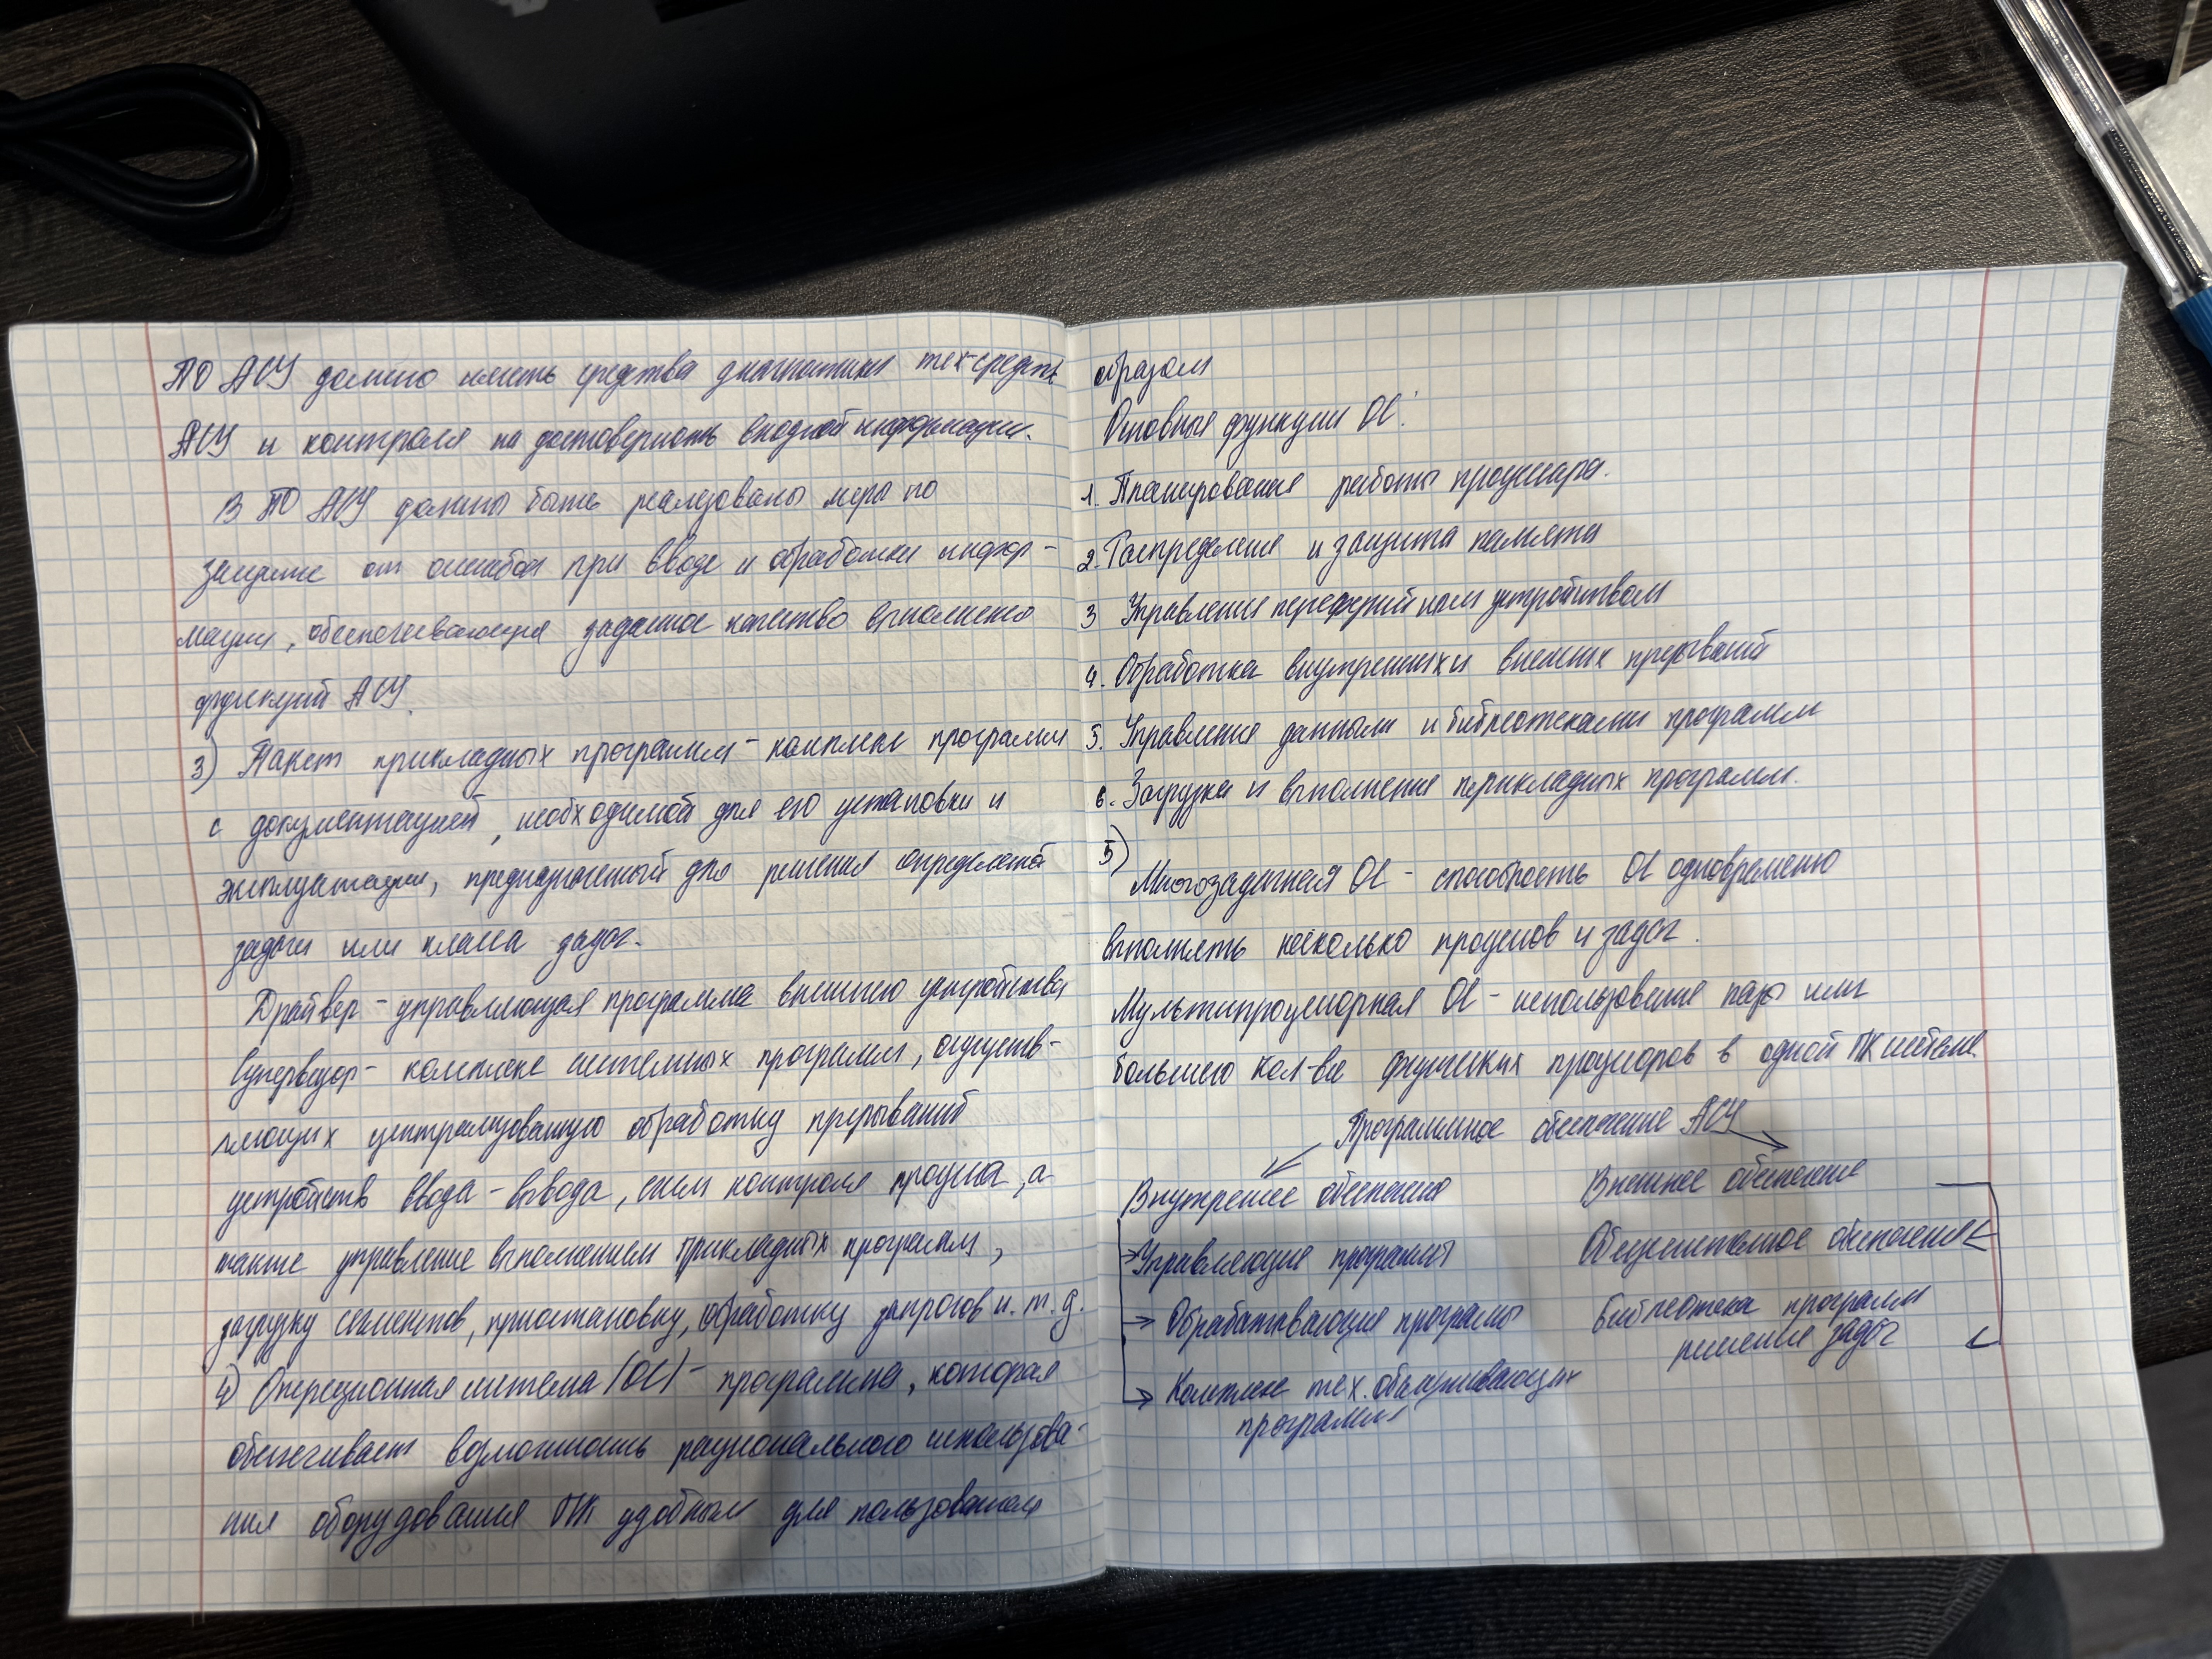 ПО АСУ должно иметь средства диагностики тех-средств
АСУ и контроля на достоверность входной информации.
В ПО АСУ должны быть реализованы меры по
защите от ошибок при вводе и обработки инфор-
мации, обеспечивающие заданное качество выполнения
функций АСУ.
3) Пакет прикладных программ - комплекс программ
с документацией, необходимой для его установки и
эксплуатации, предназначенный для решения определённой
задачи или класса задач.
Драйвер - управляющая программа внешнего устройства
Супервизор - комплекс системных программ, осуществ-
ляющих централизованную обработку прерываний
устройств ввода - вывода, схем контроля процесса, а
также управление выполнением прикладных программ,
загрузку сегментов, приостановку, обработку запросов и.т.д.
4) Операционная система (ОС) - программа, которая
обеспечивает возможность рационального использова-
ния оборудования ПК удобным для пользователя
образом
Основные функции ОС:
1. Планирование работы процессора.
2. Распределение и защита памяти
3 Управление переферийным устройством
4. Обработка внутренних и внешних прерываний
5. Управление данными и библиотеками программ
6. Загрузка и выполнение прикладных программ.
5)
Многозадачная ОС - способность ОС одновременно
выполнять несколько процессов и задач.
Мультипроцессорная ОС - использование пары или
большего кол-ва физических процессоров в одной ПК системе.
Программное обеспечение АСУ
Внутреннее обеспечение
Внешнее обеспечение
Управляющие программы
Общесистемное обеспечение
Обрабатывающие программы
Библиотека программ
решение задач
Комплекс тех. обслуживающих
программ